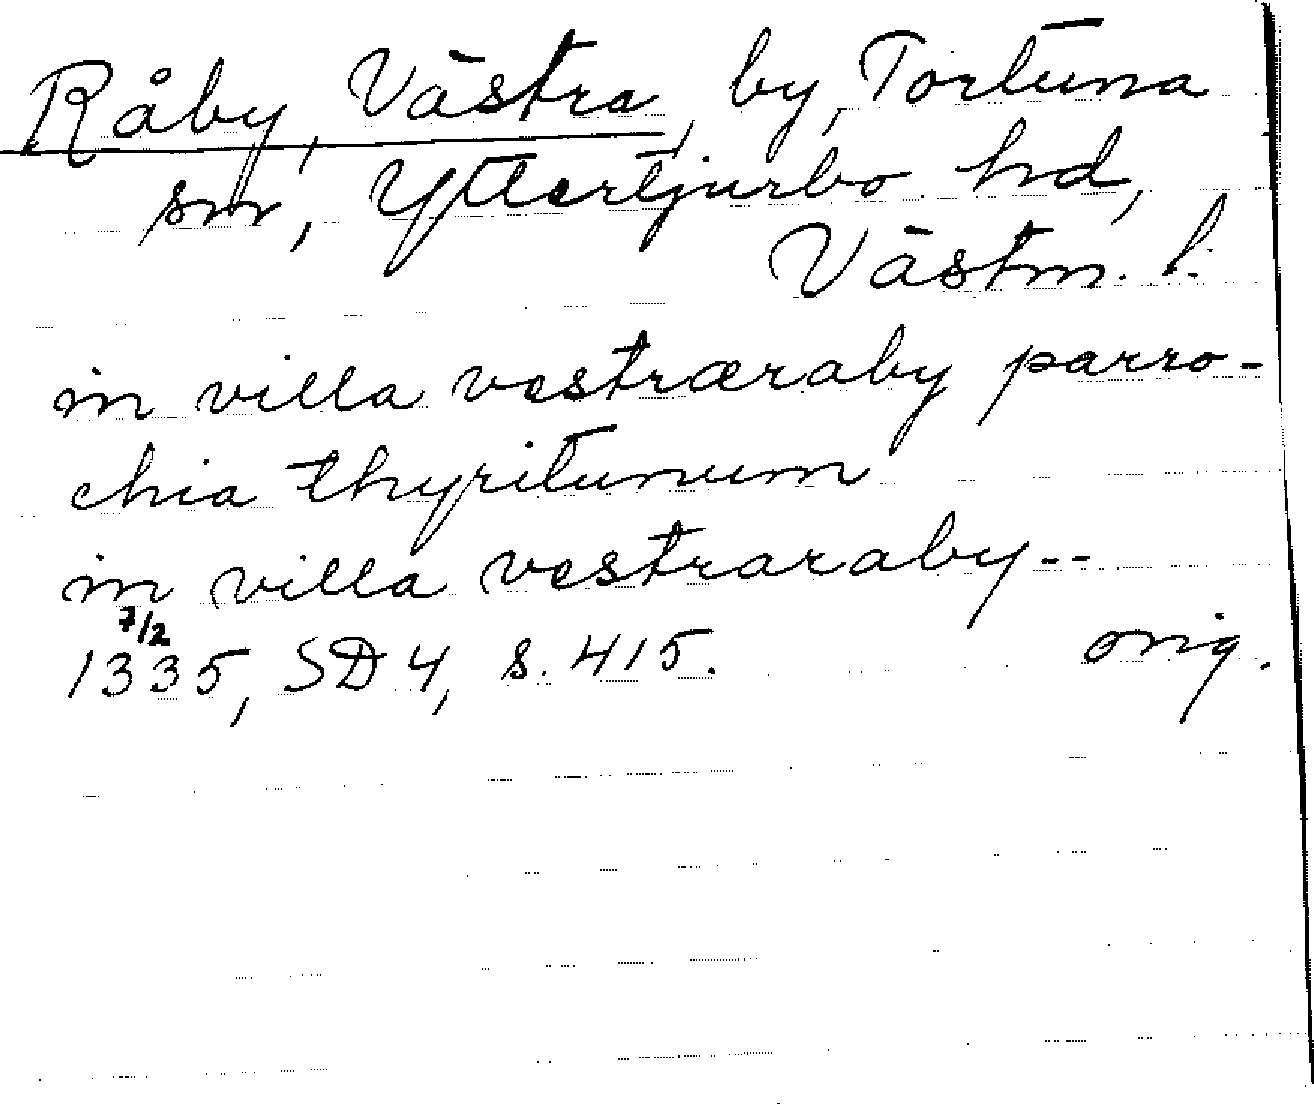 Råby, Västra, by, Tortuna
sn, Yttertjurbo hd,
Västm. l.
in villa vestræraby parro-
chia thyritunum
in villa vestraraby--
7/2
1335, SD 4, s. 415. orig.